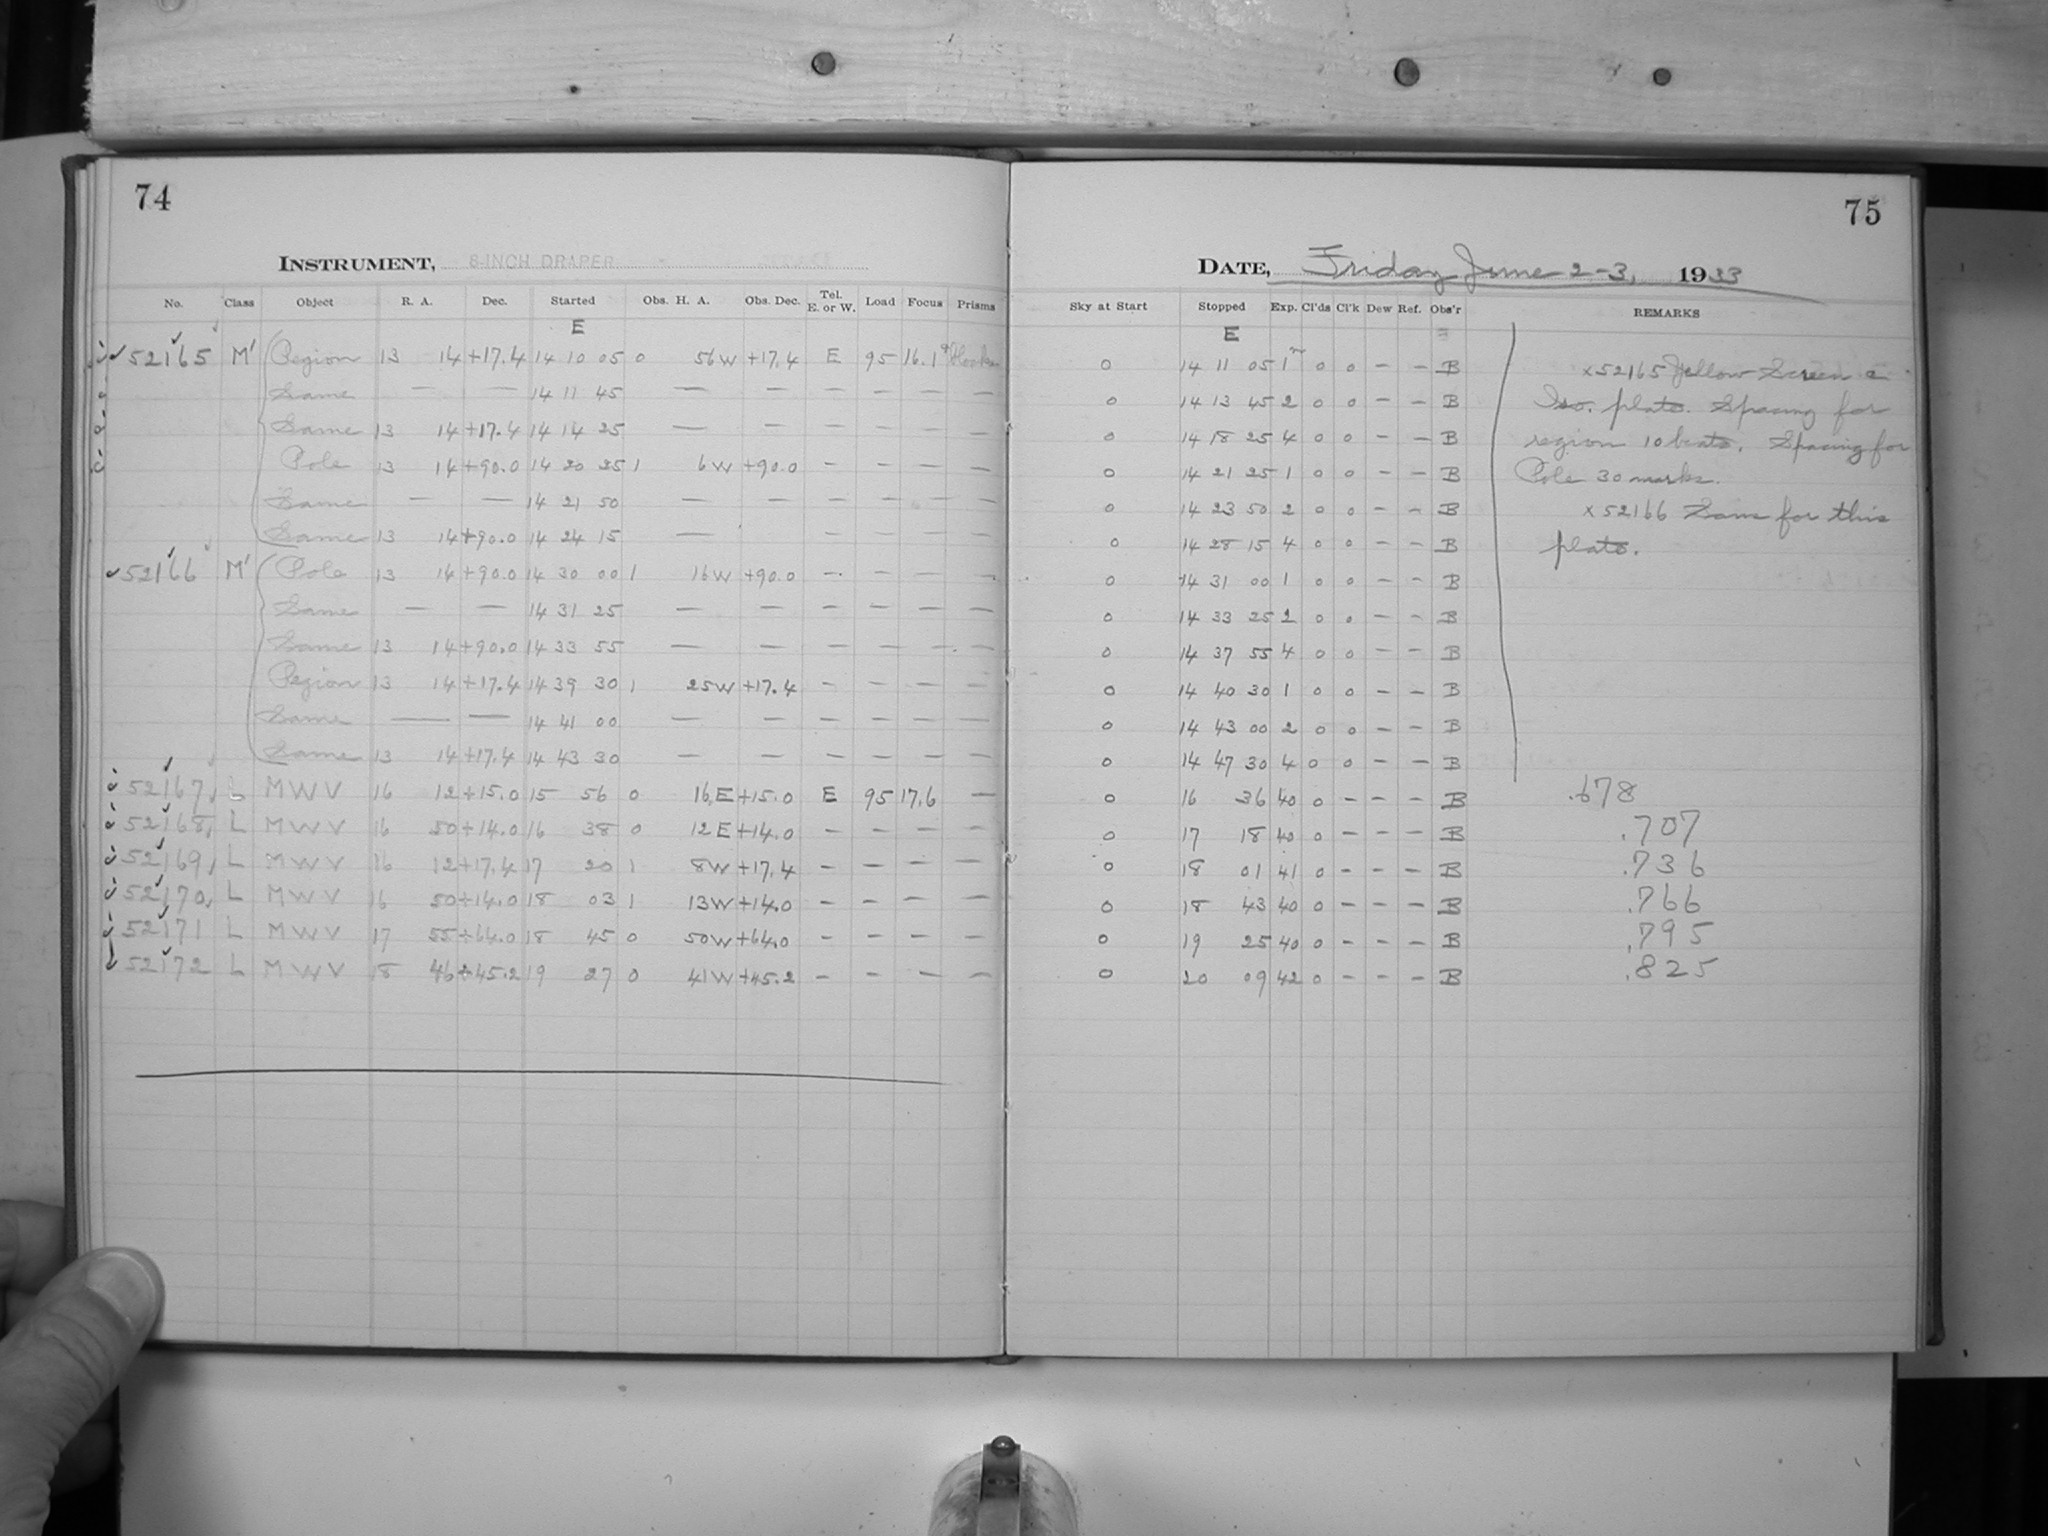 74
INSTRUMENT, 8-INCH DRAPER
No. Class Object R. A. Dec. Started Obs. H. A. Obs. Dec. Tel. E. or W. Load Focus Prisms
E
52165 M' Region 13 14 +17.4 14 10 05 0 56W +17.4 E 95 16.1
Same — — 14 11 45 — — — — — —
Same 13 14 +17.4 14 14 25 — — — — — —
Pole 13 14 +90.0 14 20 25 1 6W +90.0 — — — —
Same — — 14 21 50 — — — — — —
Same 13 14 +90.0 14 24 15 — — — — — —
52166 M' Pole 13 14 +90.0 14 30 00 1 16W +90.0 — — — —
Same — — 14 31 25 — — — — — —
Same 13 14 +90.0 14 33 55 — — — — — —
Region 13 14 +17.4 14 39 30 1 25W +17.4 — — — —
Same — — 14 41 00 — — — — — —
Same 13 14 +17.4 14 43 30 — — — — — —
52167 L MWV 16 12 +15.0 15 56 0 16E +15.0 E 95 17.6 —
52168 L MWV 16 50 +14.0 16 38 0 12E +14.0 — — — —
52169 L MWV 16 12 +17.4 17 20 1 8W +17.4 — — — —
52170 L MWV 16 50 +14.0 18 03 1 13W +14.0 — — — —
52171 L MWV 17 55 +64.0 18 45 0 50W +64.0 — — — —
52172 L MWV 18 46 +45.2 19 27 0 41W +45.2 — — — —
75
DATE, Friday June 2-3, 1933
Sky at Start Stopped Exp. Cl'ds Cl'k Dew Ref. Obs'r REMARKS
E
0 14 11 05 1m 0 0 — — B
0 14 13 45 2 0 0 — — B
0 14 18 25 4 0 0 — — B
0 14 21 25 1 0 0 — — B
0 14 23 50 2 0 0 — — B
0 14 28 15 4 0 0 — — B
0 14 31 00 1 0 0 — — B
0 14 33 25 2 0 0 — — B
0 14 37 55 4 0 0 — — B
0 14 40 30 1 0 0 — — B
0 14 43 00 2 0 0 — — B
0 14 47 30 4 0 0 — — B
0 16 36 40 0 — — — B .678
0 17 18 40 0 — — — B .707
0 18 01 41 0 — — — B .736
0 18 43 40 0 — — — B .766
0 19 25 40 0 — — — B .795
0 20 09 42 0 — — — B .825
x52165 Yellow Screen
Iso. plate. Spacing for
region 10 beats. Spacing for
Pole 30 marks.
x52166 Same for this
plate.